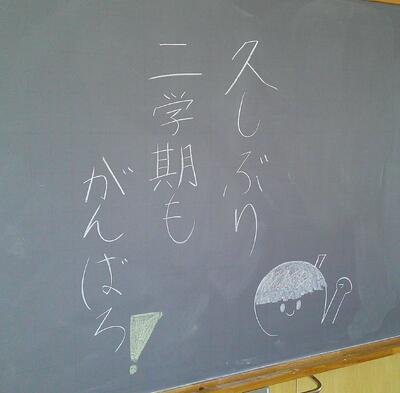 久しぶり
二学期も
がんばろ!